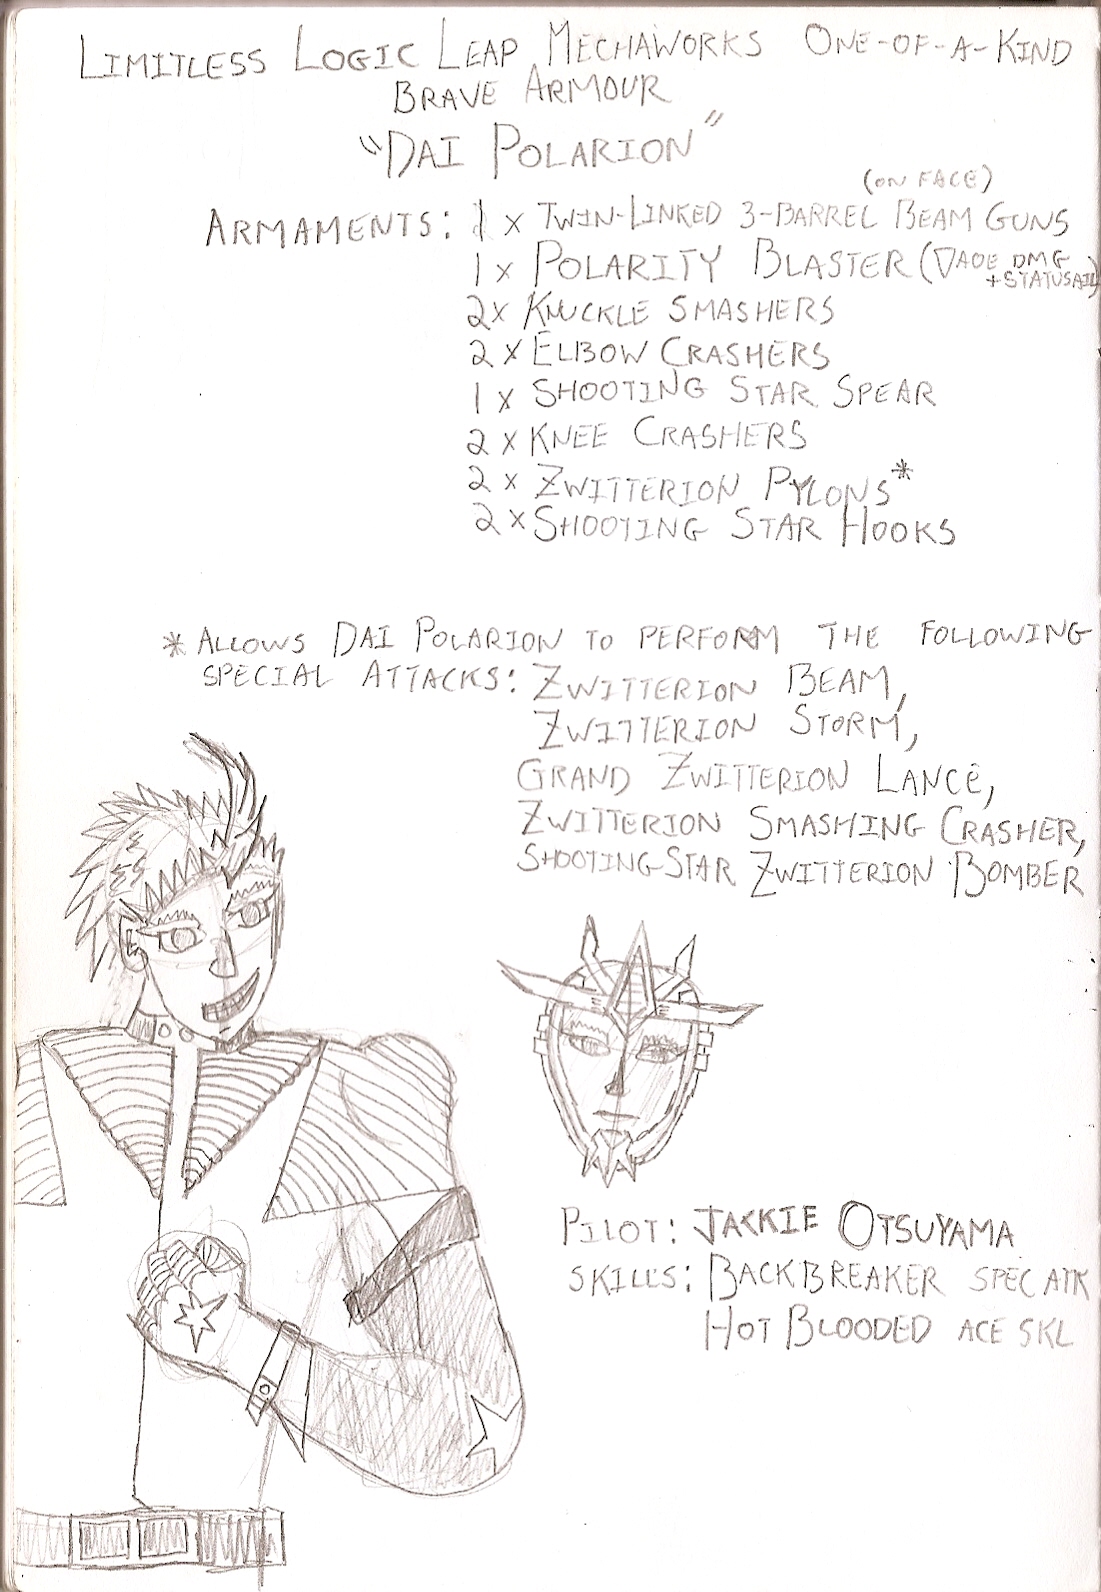 LIMITLESS LOGIC LEAP MECHAWORKS ONE-OF-A-KIND
BRAVE ARMOUR
"DAI POLARION"
(ON FACE)
ARMAMENTS: 1 x TWIN-LINKED 3-BARREL BEAM GUNS
1 x POLARITY BLASTER ( AOE DMG
+STATUSAIL)
2x KNUCKLE SMASHERS
2 x ELBOW CRASHERS
1 x SHOOTING STAR SPEAR
2 x KNEE CRASHERS
2 x ZWITTERION PYLONS*
2 x SHOOTING STAR HOOKS
* ALLOWS DAI POLARION TO PERFORM THE FOLLOWING
SPECIAL ATTACKS: ZWITTERION BEAM,
ZWITTERION STORM,
GRAND ZWITTERION LANCE,
ZWITTERION SMASHING CRASHER,
SHOOTING-STAR ZWITTERION BOMBER
PILOT: JACKIE OTSUYAMA
SKILLS: BACKBREAKER SPEC ATK
HOT BLOODED ACE SKL